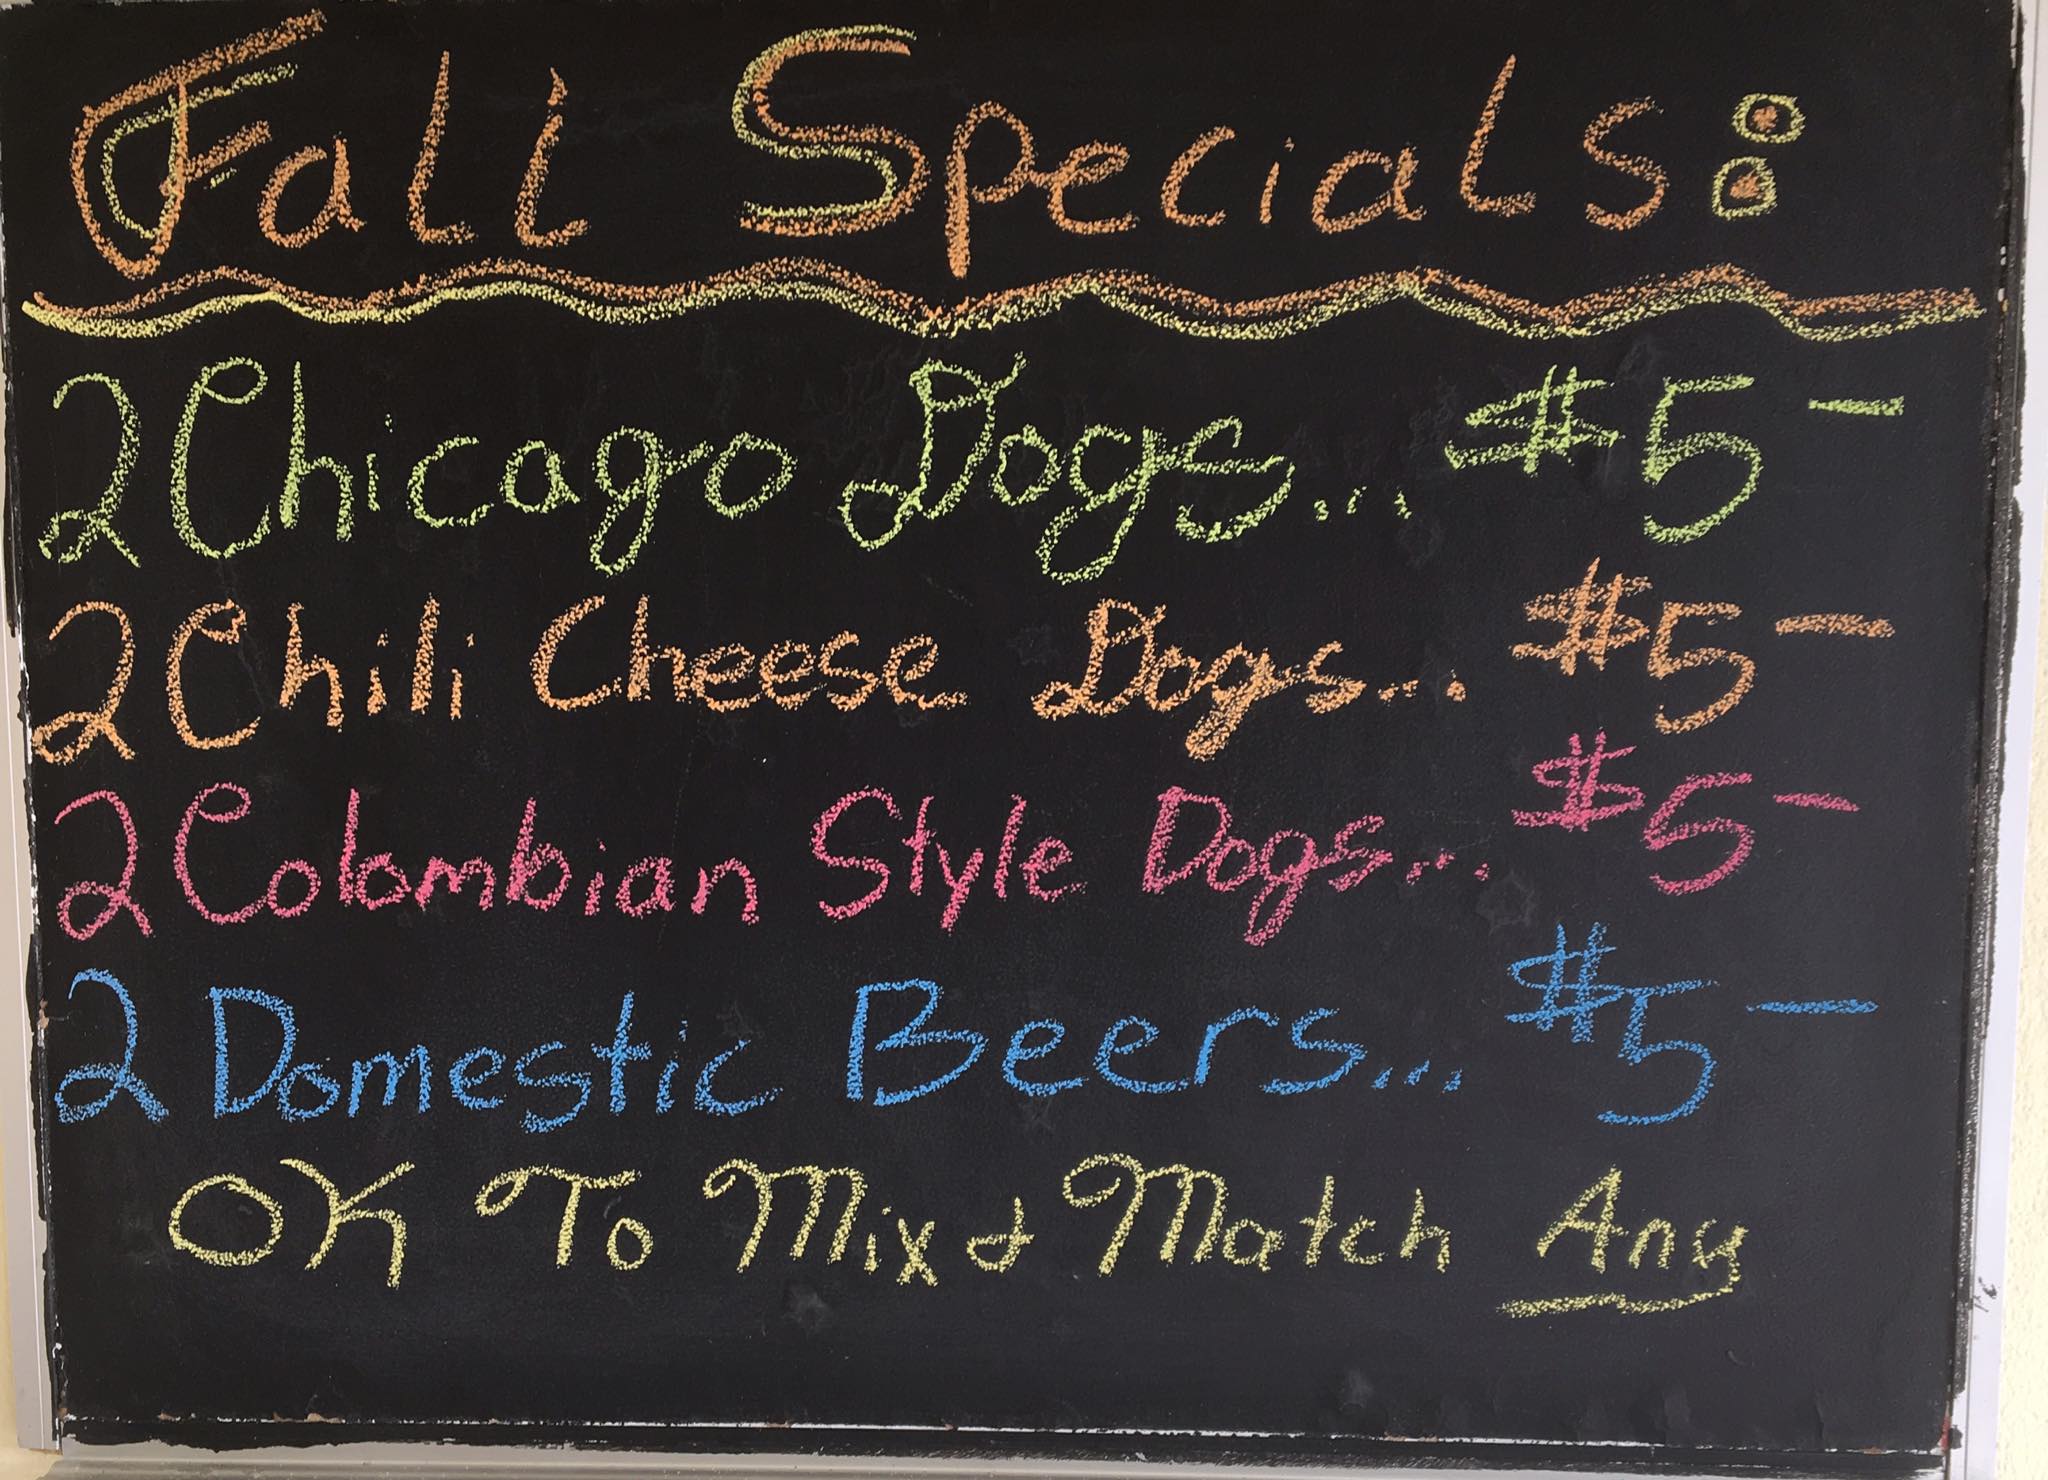 Fall Specials:
2 Chicago Dogs... $5-
2 Chili Cheese Dogs... $5-
2 Colombian Style Dogs... $5-
2 Domestic Beers... $5-
OK To Mix & Match Any